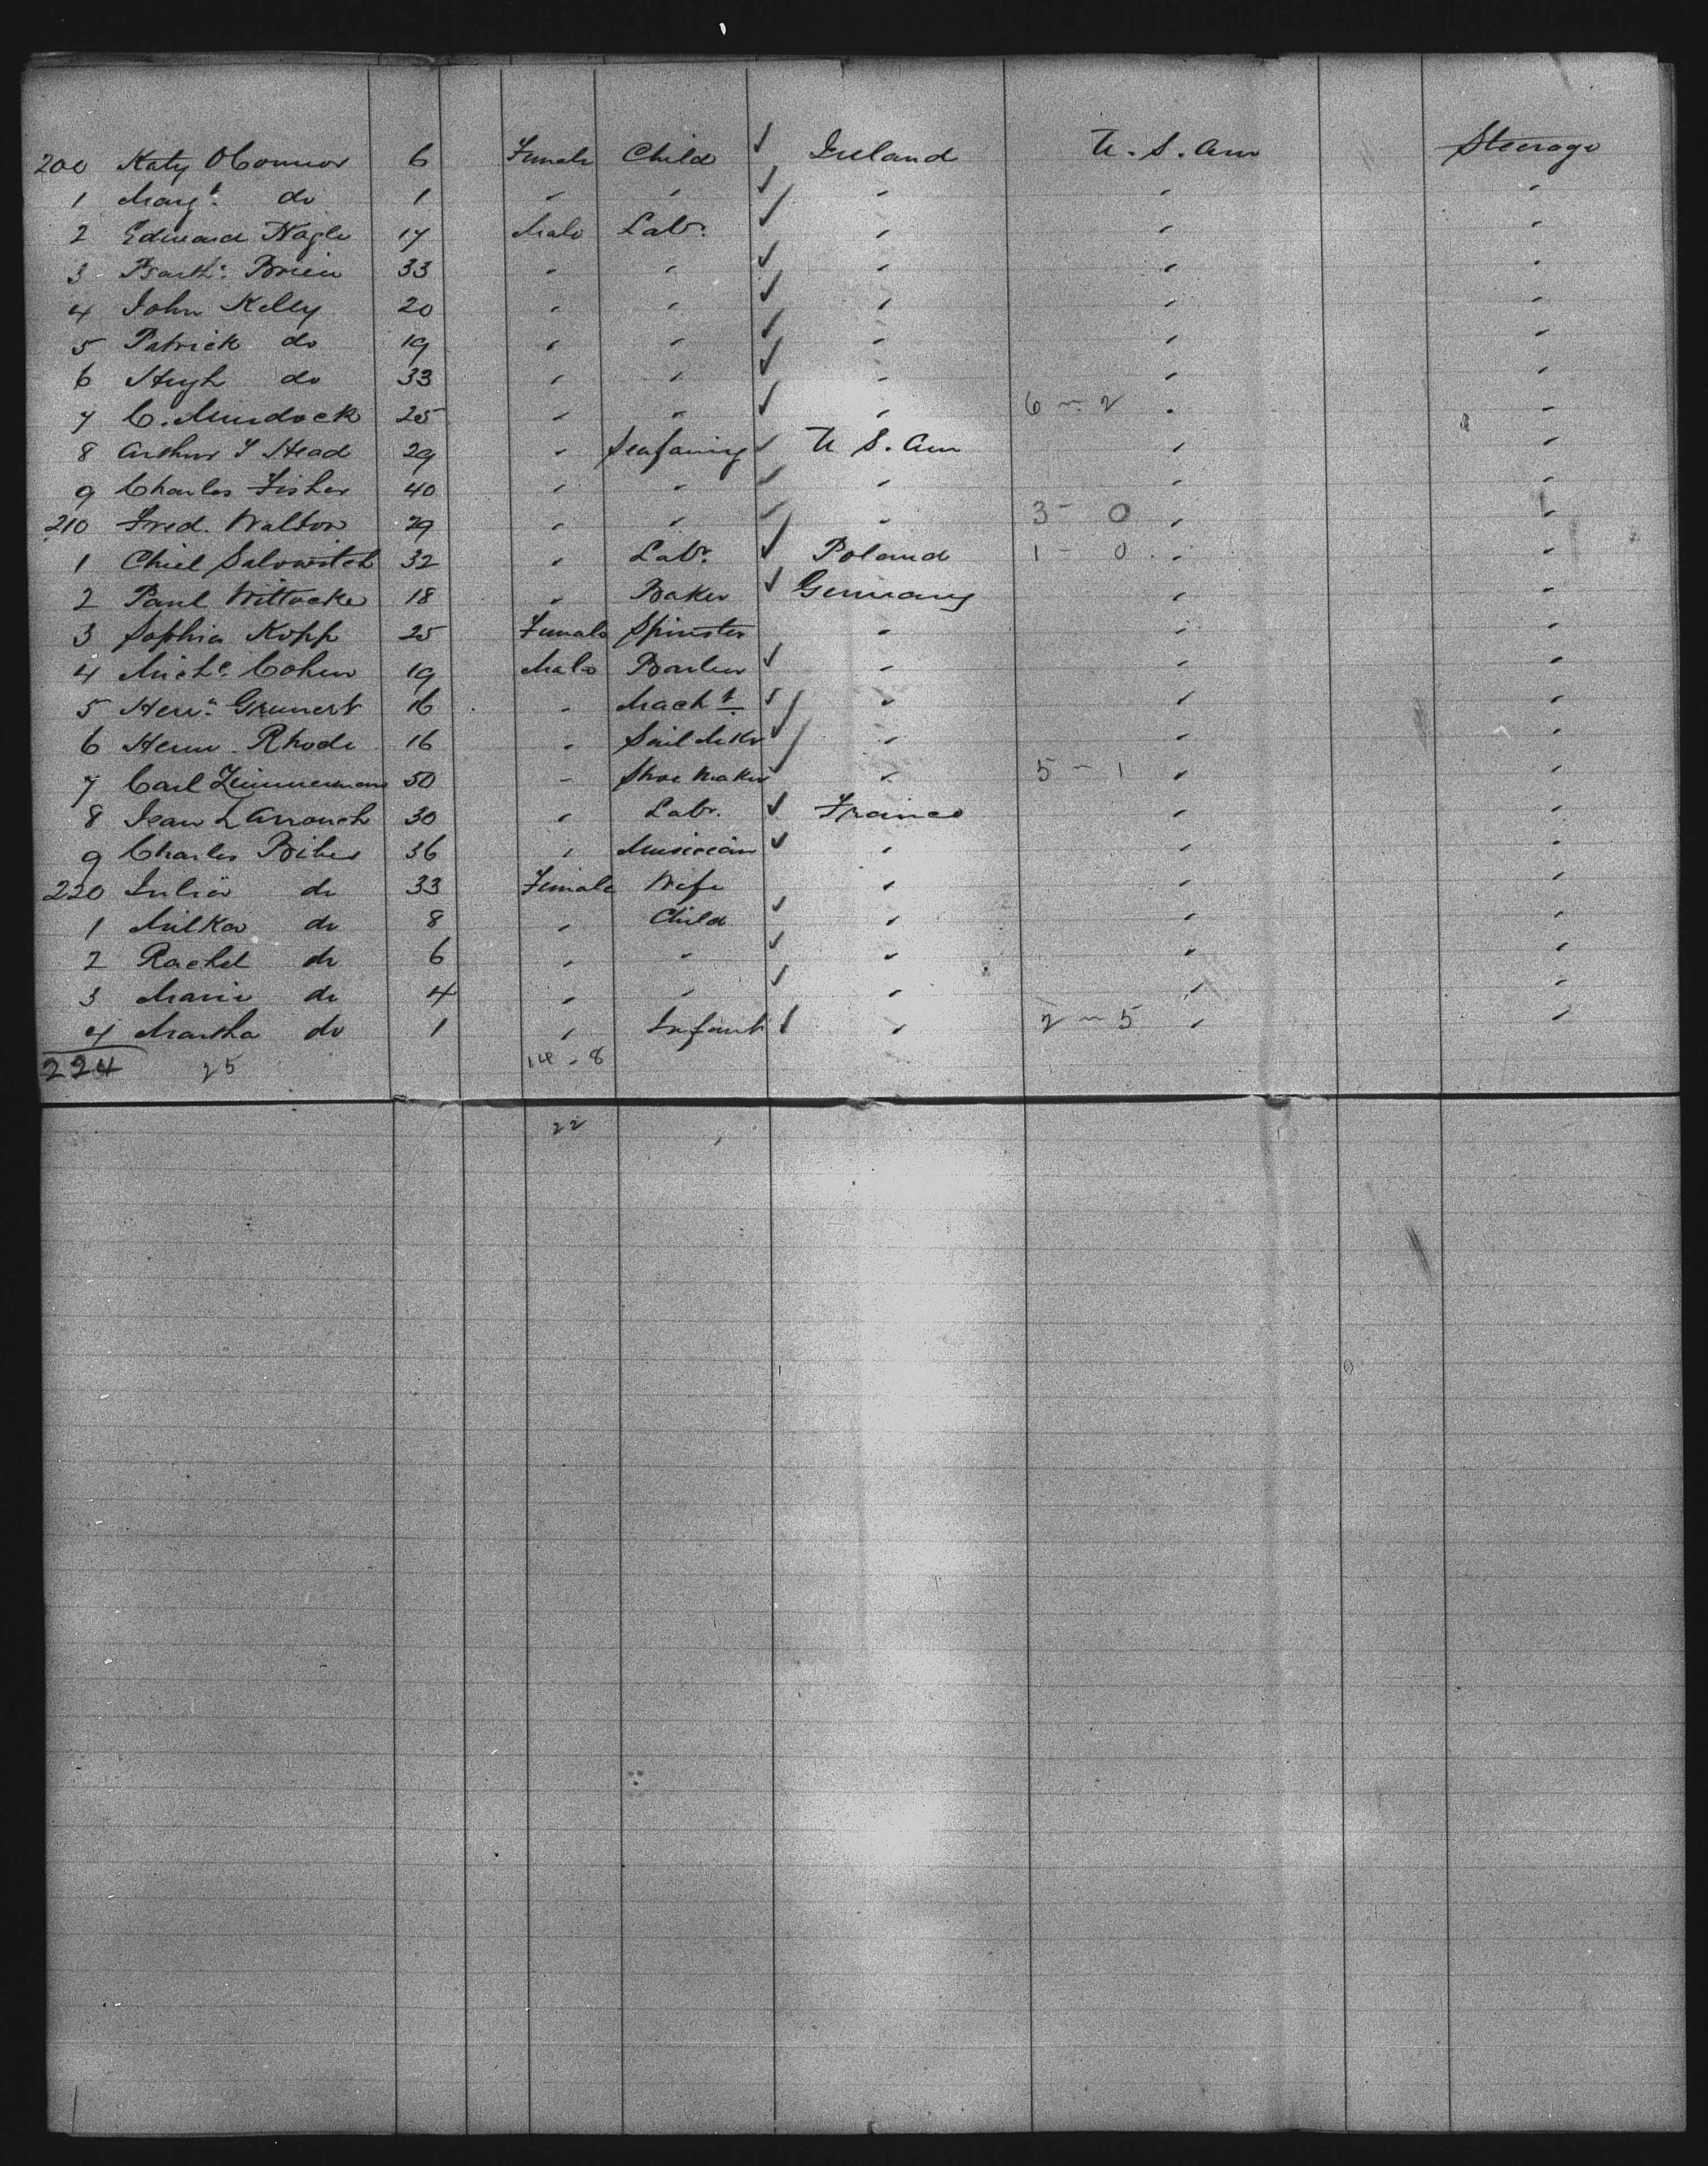 200 Katy OConnor 6 Female Child ✓ Ireland U. S. Am Steerage
1 Margt do 1 " " ✓ " " "
2 Edward Nagle 17 Male Labr. ✓ " " "
3 Barth: Brien 33 " " ✓ " " "
4 John Kelly 20 " " ✓ " " "
5 Patrick do 19 " " ✓ " " "
6 Hugh do 33 " " ✓ " " "
7 C. Murdock 25 " " ✓ " 6 - 2 " "
8 Arthur Head 29 " Seafaring ✓ U S. Am " "
9 Charles Fisher 40 " " ✓ " " "
210 Fred. Walton 29 " " ✓ " 3 - 0 " "
1 Chiel Salowitch 32 " Labr. ✓ Poland 1 - 0 " "
2 Paul 18 " Baker ✓ Germany " "
3 Sophia Kopp 25 Female Spinster " " "
4 Michl. Cohen 19 Male ✓ " " "
5 Grunert 16 " Macht ✓ " " "
6 Herm. Rhode 16 " Sail Mkr ✓ " " "
7 Carl Zimmerman 50 " Shoe Maker ✓ " 5 - 1 " "
8 Jean 30 " Labr. ✓ France " "
9 Charles Bibes 36 " Musician ✓ " " "
220 Julia do 33 Female Wife " " "
1 Milka do 8 " Child ✓ " " "
2 Rachel do 6 " " ✓ " " "
3 Marie do 4 " " ✓ " " "
4 Martha do 1 " Infant ✓ " 2 - 5 " "
224 25 14 - 8
22